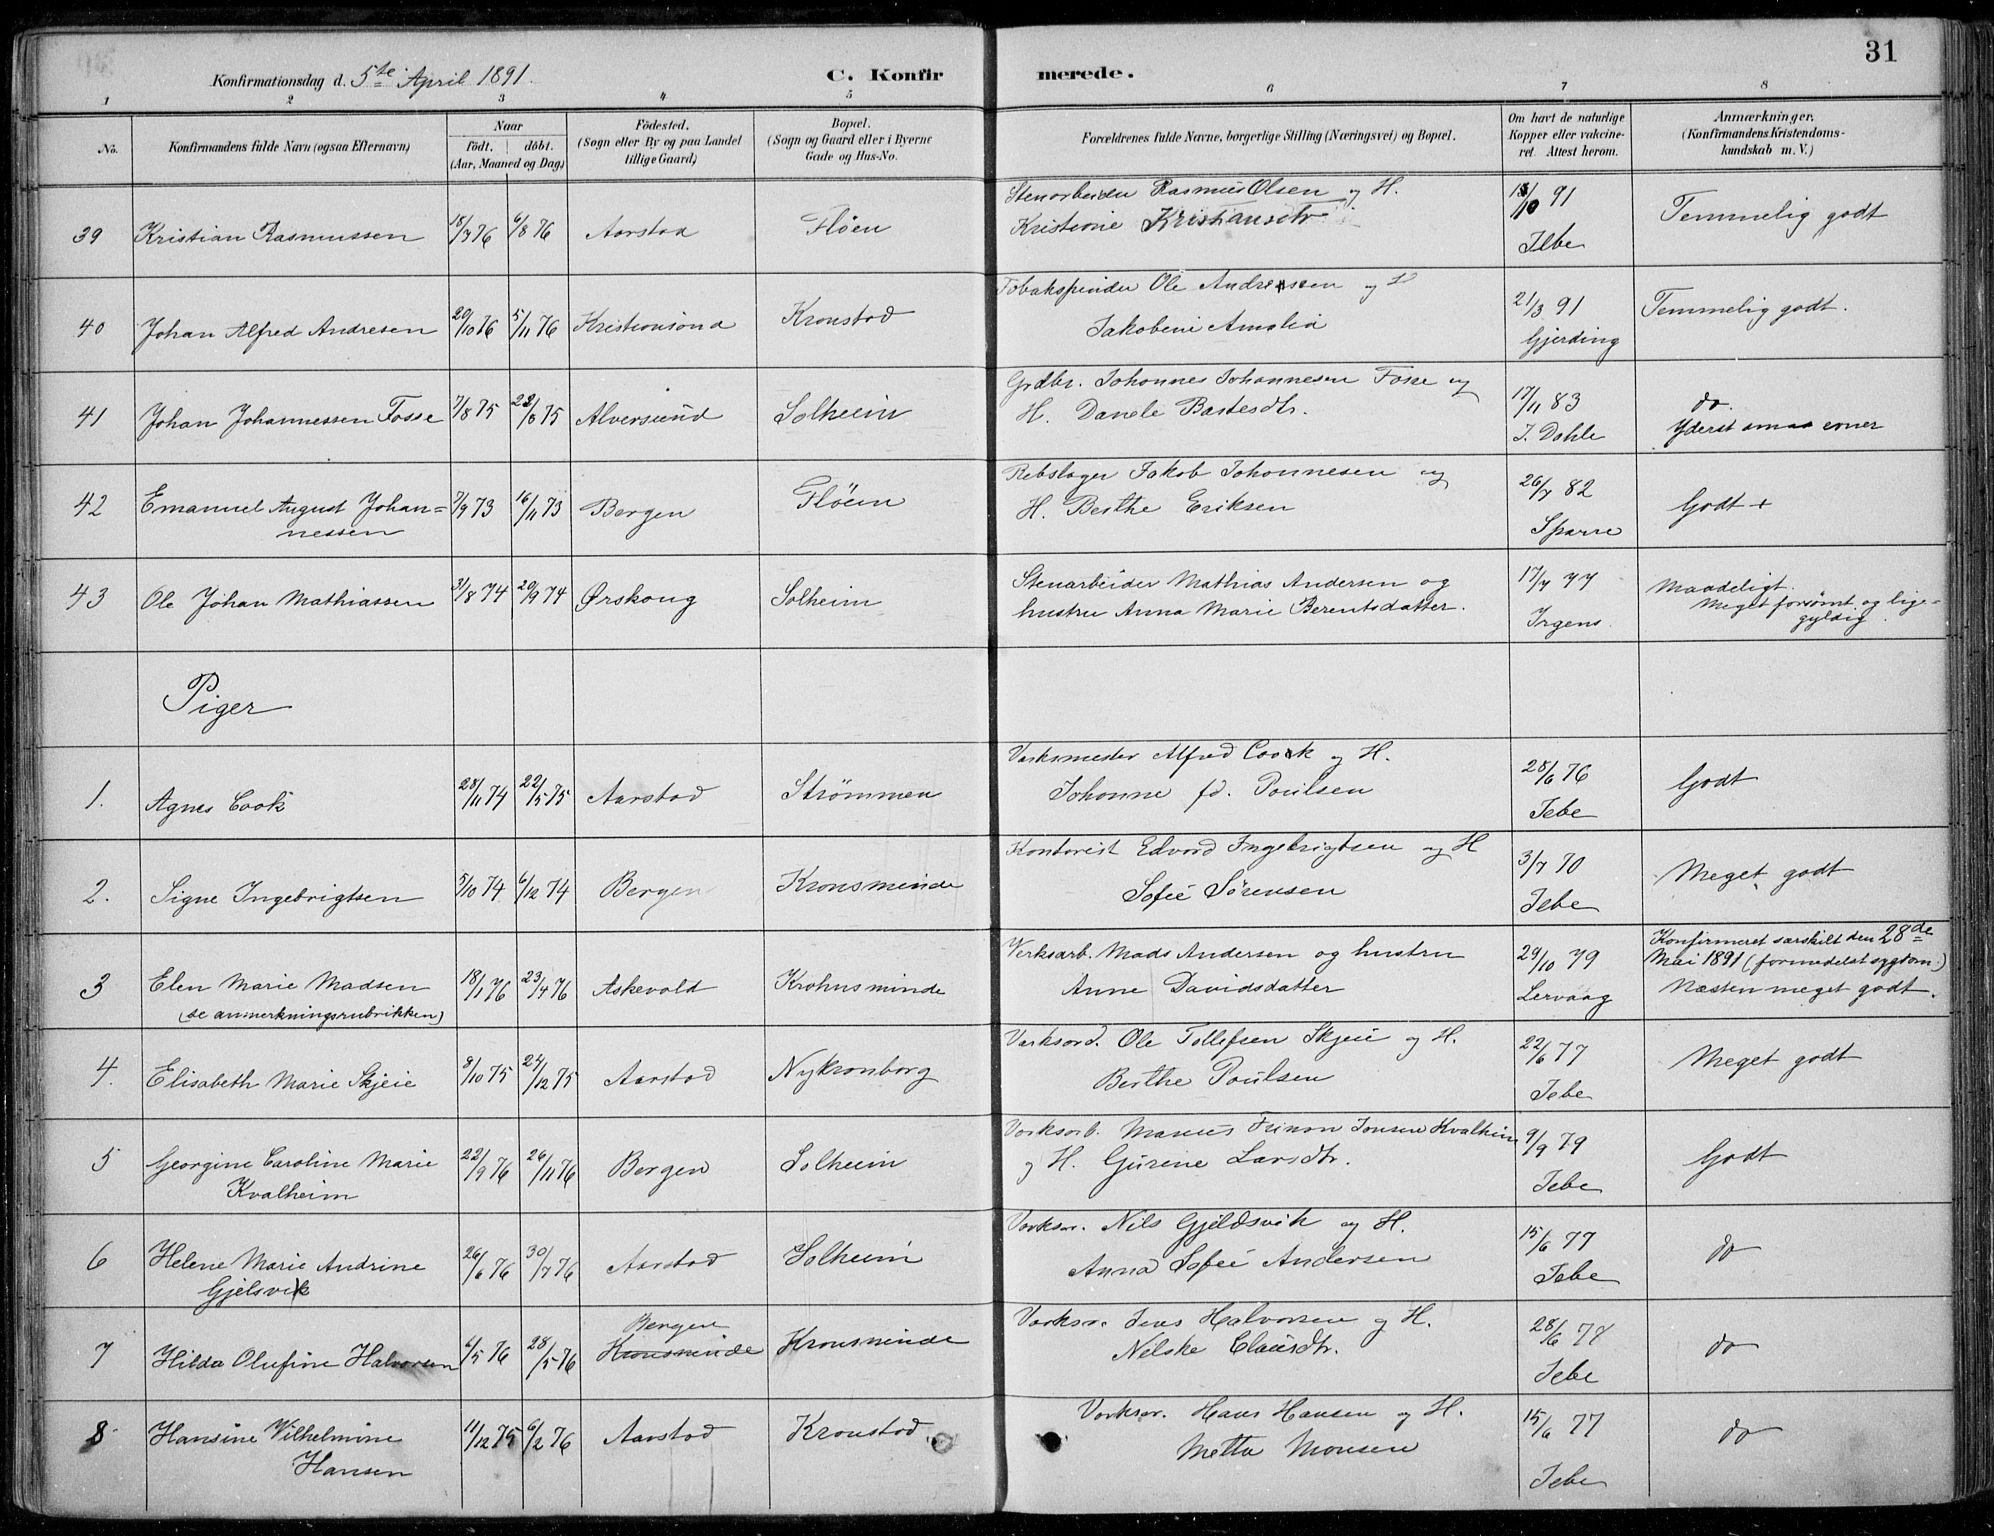 31
Konfirmationsdag d. 5te April 1891.
C. Konfirmerede.
1 2 3 4 5 6 7 8
No.
Konfirmandens fulde Navn (ogsaa Efternavn)
Naar
Födt. döbt.
(Aar, Maaned og Dag)
Födested.
(Sogn eller By og paa Landet
tillige Gaard)
Bopæl.
(Sogn og Gaard eller i Byerne
Gade og Hus-No.
Forældrenes fulde Navne, borgerlige Stilling (Næringsvei) og Bopæl.
Om havt de naturlige
Kopper eller vakcine-
ret. Attest herom.
Anmærkninger.
(Konfirmandens Kristendoms-
kundskab m. V.)
39 Kristian Rasmussen 18/7 76 6/8 76 Aarstad Fløen
Stenarbeider Rasmus Olsen og H.
Kristine Kristiansdtr
/10 91
Jebe
Temmelig godt
40 Johan Alfred Andresen 20/10 76 5/11 76 Kristiansund Kronstad
Tobakspinder Ole Andresen og H
Jakobine Amalia
21/3 91
Gjerding
Temmelig godt.
41 Johan Johannessen Fosse 7/8 75 22/8 75 Alversund Solheim
Grdbr. Johannes Johannesen Fosse og
H. Danele Bastesdtr.
17/11 83
J. Dahle
do.
Yderst smaa evner
42 Emanuel August Johan=
nessen
7/9 73 16/11 73 Bergen Fløen
Rebslager Jakob Johannesen og
H. Berthe Eriksen
26/7 82
Sparre
Godt +
43 Ole Johan Mathiassen 31/8 74 20/9 74 Ørskoug Solheim
Stenarbeider Mathias Andersen og
hustru Anna Marie Berentsdatter.
17/7 77
Irgens.
Maadeligt.
Meget forsømt og lige-
gyldig.
Piger
1. Agnes Cook 28/11 74 22/5 75 Aarstad Strømmen
Verksmester Alfred Cook og H.
Johanne fd. Poulsen
28/6 76
Jebe
Godt
2. Signe Ingebrigtsen 5/10 74. 6/12 74 Bergen Kronsminde
Kontorist Edvard Ingebrigtsen og H
Sofie Sørensen
3/7 70
Jebe
Meget godt
3 Elen Marie Madsen
(se anmerkningsrubrikken)
18/1 76 23/4 76 Askevold Krohnsminde
Verksarb. Mads Andersen og hustru
Anne Davidsdatter
29/10 79
Lervaag
Konfirmeret særskilt den 28de
Mai 1891 (formedelst sygdom.)
Næsten meget godt.
4. Elisabeth Marie Skjeie 8/10 75 24/12 75 Aarstad Nykronborg
Ole Tollefsen Skjeie og H.
Berthe Poulsen
22/6 77
Jebe
Meget godt
5 Georgine Caroline Marie
Kvalheim
22/9 76 26/11 76 Bergen Solheim
Verksarb. Jonsen Kvalheim
og H. Gurine Larsdtr.
9/9 79
Jebe
Godt
6 Helene Marie Andrine
Gjelsvik
26/6 76 30/7 76 Aarstad Solheim
Verksar. Nils Gjeldsvik og H.
Anna Sofie Andersen
15/6 77
Jebe
do
7 Hilda Olufine Halvorsen 4/5 76 28/5 76 Bergen
Kronsminde Kronsminde
Verksar. Jens Halvorsen og H.
Nelske Clausdtr.
28/6 78
Jebe
do
8 Hansine Vilhelmine
Hansen
11/12 75 6/2 76 Aarstad Kronstad
Verksar. Hans Hansen og H.
Metta Monsen
15/6 77
Jebe
do